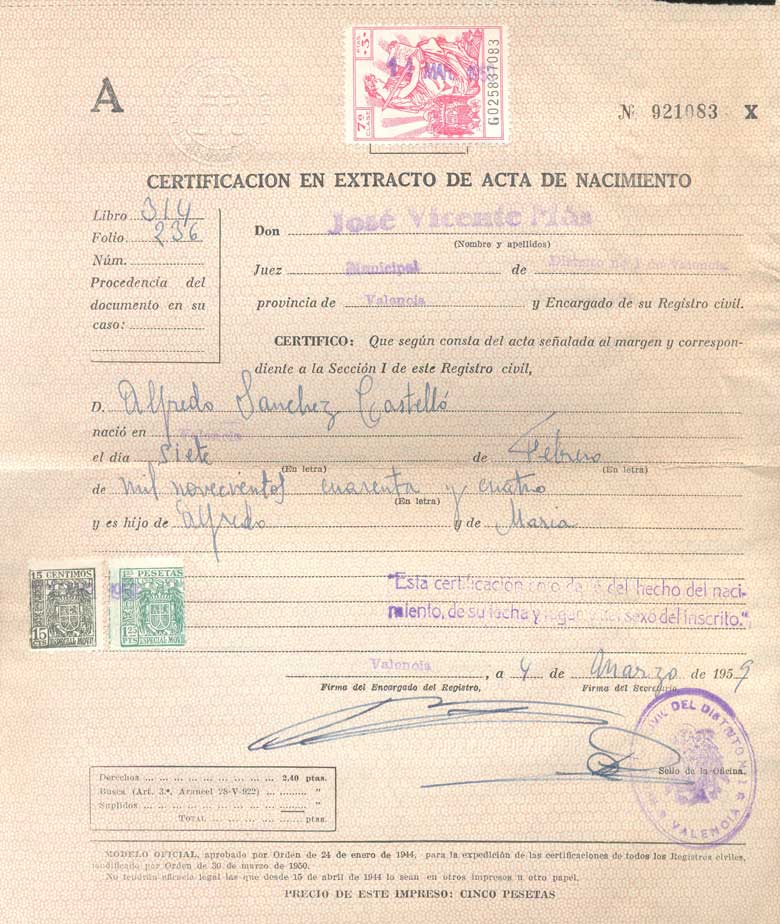 A
PTAS -3-
7ª CLASE
G025837083
11 MAR. 195
Nº 921083 X
CERTIFICACION EN EXTRACTO DE ACTA DE NACIMIENTO
Libro 314
Folio 236
Núm.
Procedencia del
documento en su
caso:
Don José Vicente Más
(Nombre y apellidos)
Juez Municipal de Distrito nº 1 de Valencia
provincia de Valencia y Encargado de su Registro civil.
CERTIFICO: Que según consta del acta señalada al margen y correspon-
diente a la Sección I de este Registro civil,
D. Alfredo Sanchez Castelló
nació en Valencia
el día siete de Febrero
(En letra) (En letra)
de mil novecientos cuarenta y cuatro
(En letra)
y es hijo de Alfredo y de Maria
15 CENTIMOS
15 CTS
ESPECIAL MOVIL
1,25 PESETAS
1,25 PTS
ESPECIAL MOVIL
"Esta certificación solo da fé del hecho del naci-
miento, de su fecha y lugar y del sexo del inscrito."
Valencia, a 4 de Marzo de 1959
Firma del Encargado del Registro, Firma del Secretario,
CIVIL DEL DISTRITO N.º 1
VALENCIA
Sello de la Oficina.
Derechos ... 2,40 ptas.
Busca (Art. 3.º, Arancel 28-V-922) ... "
Suplidos ... "
TOTAL ... ptas.
MODELO OFICIAL, aprobado por Orden de 24 de enero de 1944, para la expedición de las certificaciones de todos los Registros civiles,
modificado por Orden de 30 de marzo de 1950.
No tendrán eficacia legal las que desde 15 de abril de 1944 lo sean en otros impresos u otro papel.
PRECIO DE ESTE IMPRESO: CINCO PESETAS